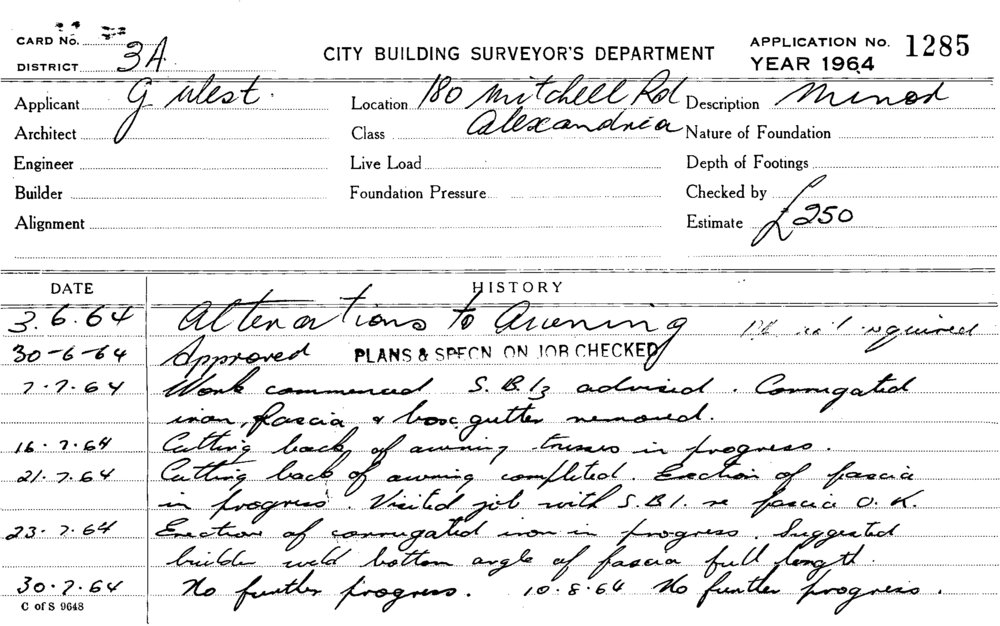 CARD No.
DISTRICT 3A
CITY BUILDING SURVEYOR'S DEPARTMENT
APPLICATION No. 1285
YEAR 1964
Applicant G West. Location 180 Mitchell Rd Description Minor
Architect Class Alexandria Nature of Foundation
Engineer Live Load Depth of Footings
Builder Foundation Pressure Checked by
Alignment Estimate £250
DATE HISTORY
3.6.64 Alterations to Awning required
30-6-64 Approved PLANS & SPECN ON JOB CHECKED
7.7.64 Work commenced S.B.I. advised. Corrugated
iron, fascia & box gutter removed.
16.7.64 Cutting back of awning trusses in progress.
21.7.64 Cutting back of awning completed. Erection of fascia
in progress. Visited job with S.B.I. re fascia O.K.
23.7.64 Erection of corrugated iron in progress. Suggested
builder weld bottom angle of fascia full length.
30.7.64 No further progress. 10.8.64 No further progress.
C of S 9648